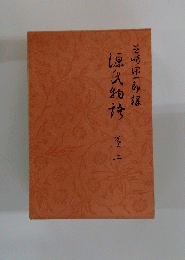 谷崎潤一郎譯
源氏物語
巻二